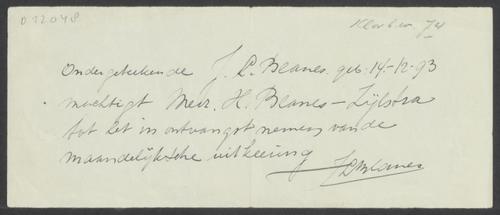 D 12048
74
Ondergetekende J. L. Blanes. geb. 14-12-93
machtigt Mevr. H. Blanes-Zijlstra
tot het in ontvangst nemen van de
maandelijksche uitkeering
J L Blanes